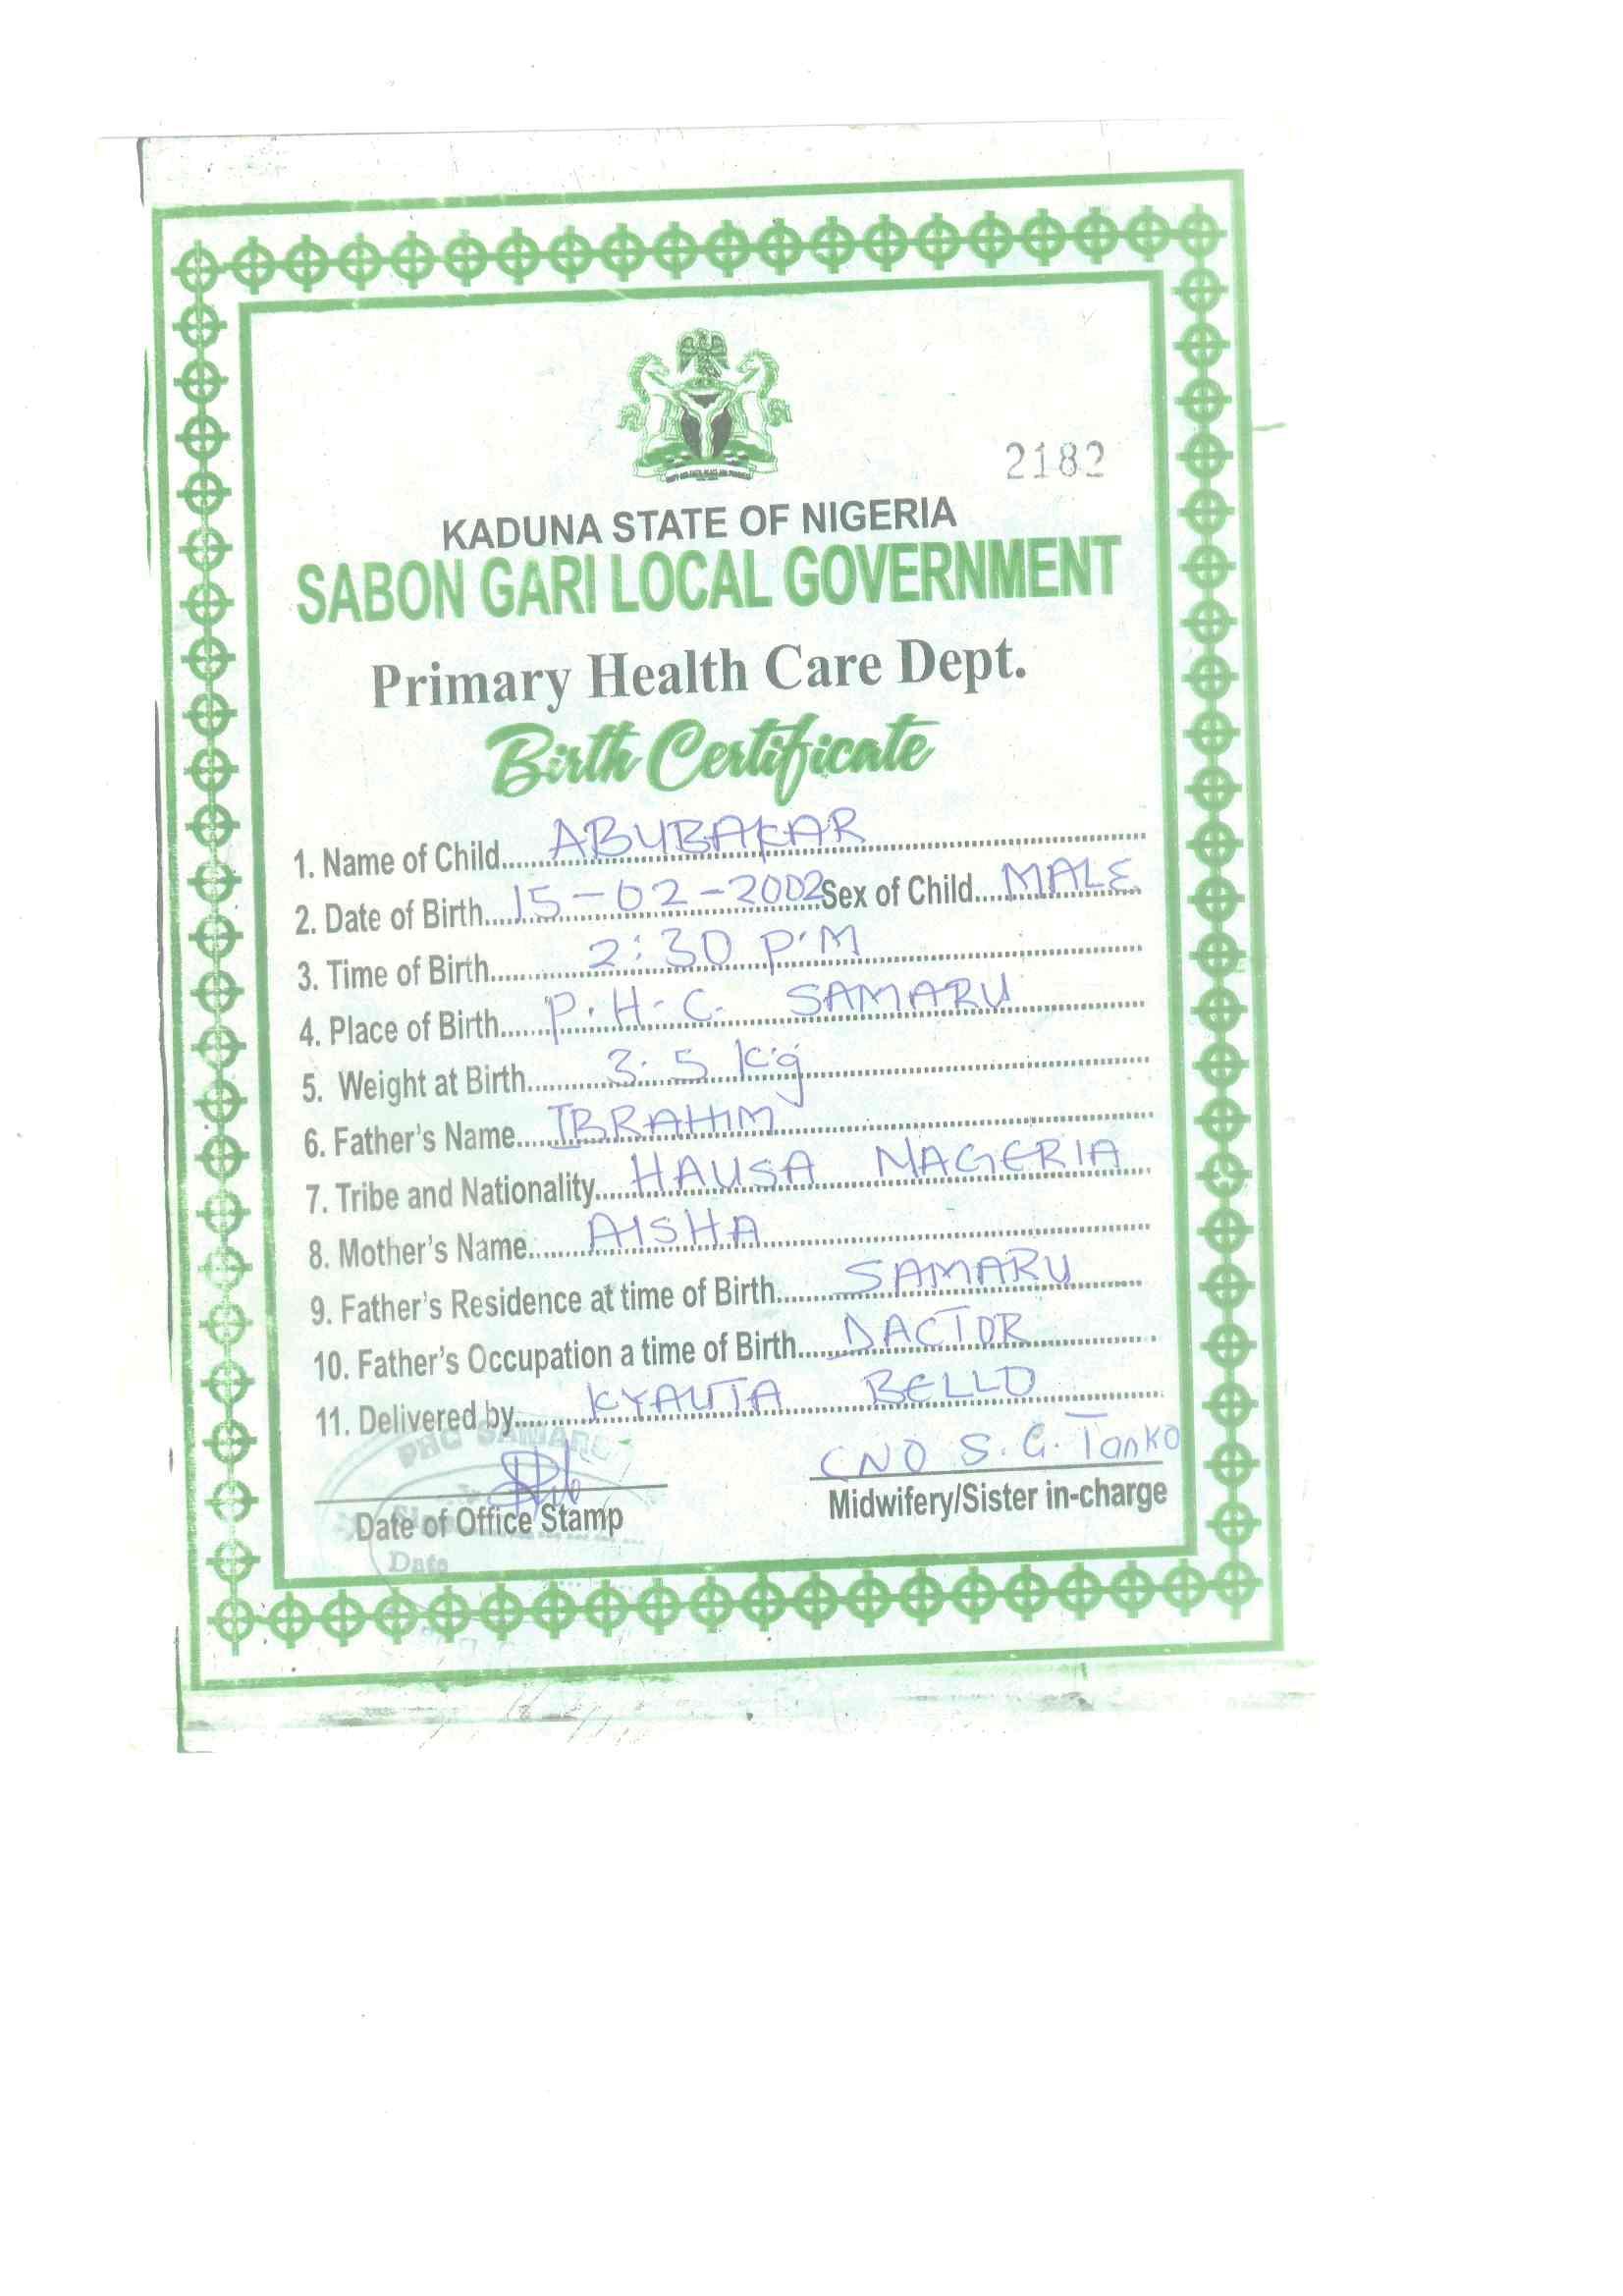 2182
KADUNA STATE OF NIGERIA
SABON GARI LOCAL GOVERNMENT
Primary Health Care Dept.
Birth Certificate
1. Name of Child ABUBAKAR
2. Date of Birth 15-02-2002 Sex of Child MALE
3. Time of Birth 2:30 P.M
4. Place of Birth P.H.C. SAMARU
5. Weight at Birth 3.5 kg
6. Father's Name IBRAHIM
7. Tribe and Nationality HAUSA NAGERIA
8. Mother's Name AISHA
9. Father's Residence at time of Birth SAMARU
10. Father's Occupation a time of Birth DACTOR
11. Delivered by KYAUTA BELLO
PHC SAMARU
CNO S.G. Tanko
Date of Office Stamp Midwifery/Sister in-charge
Date